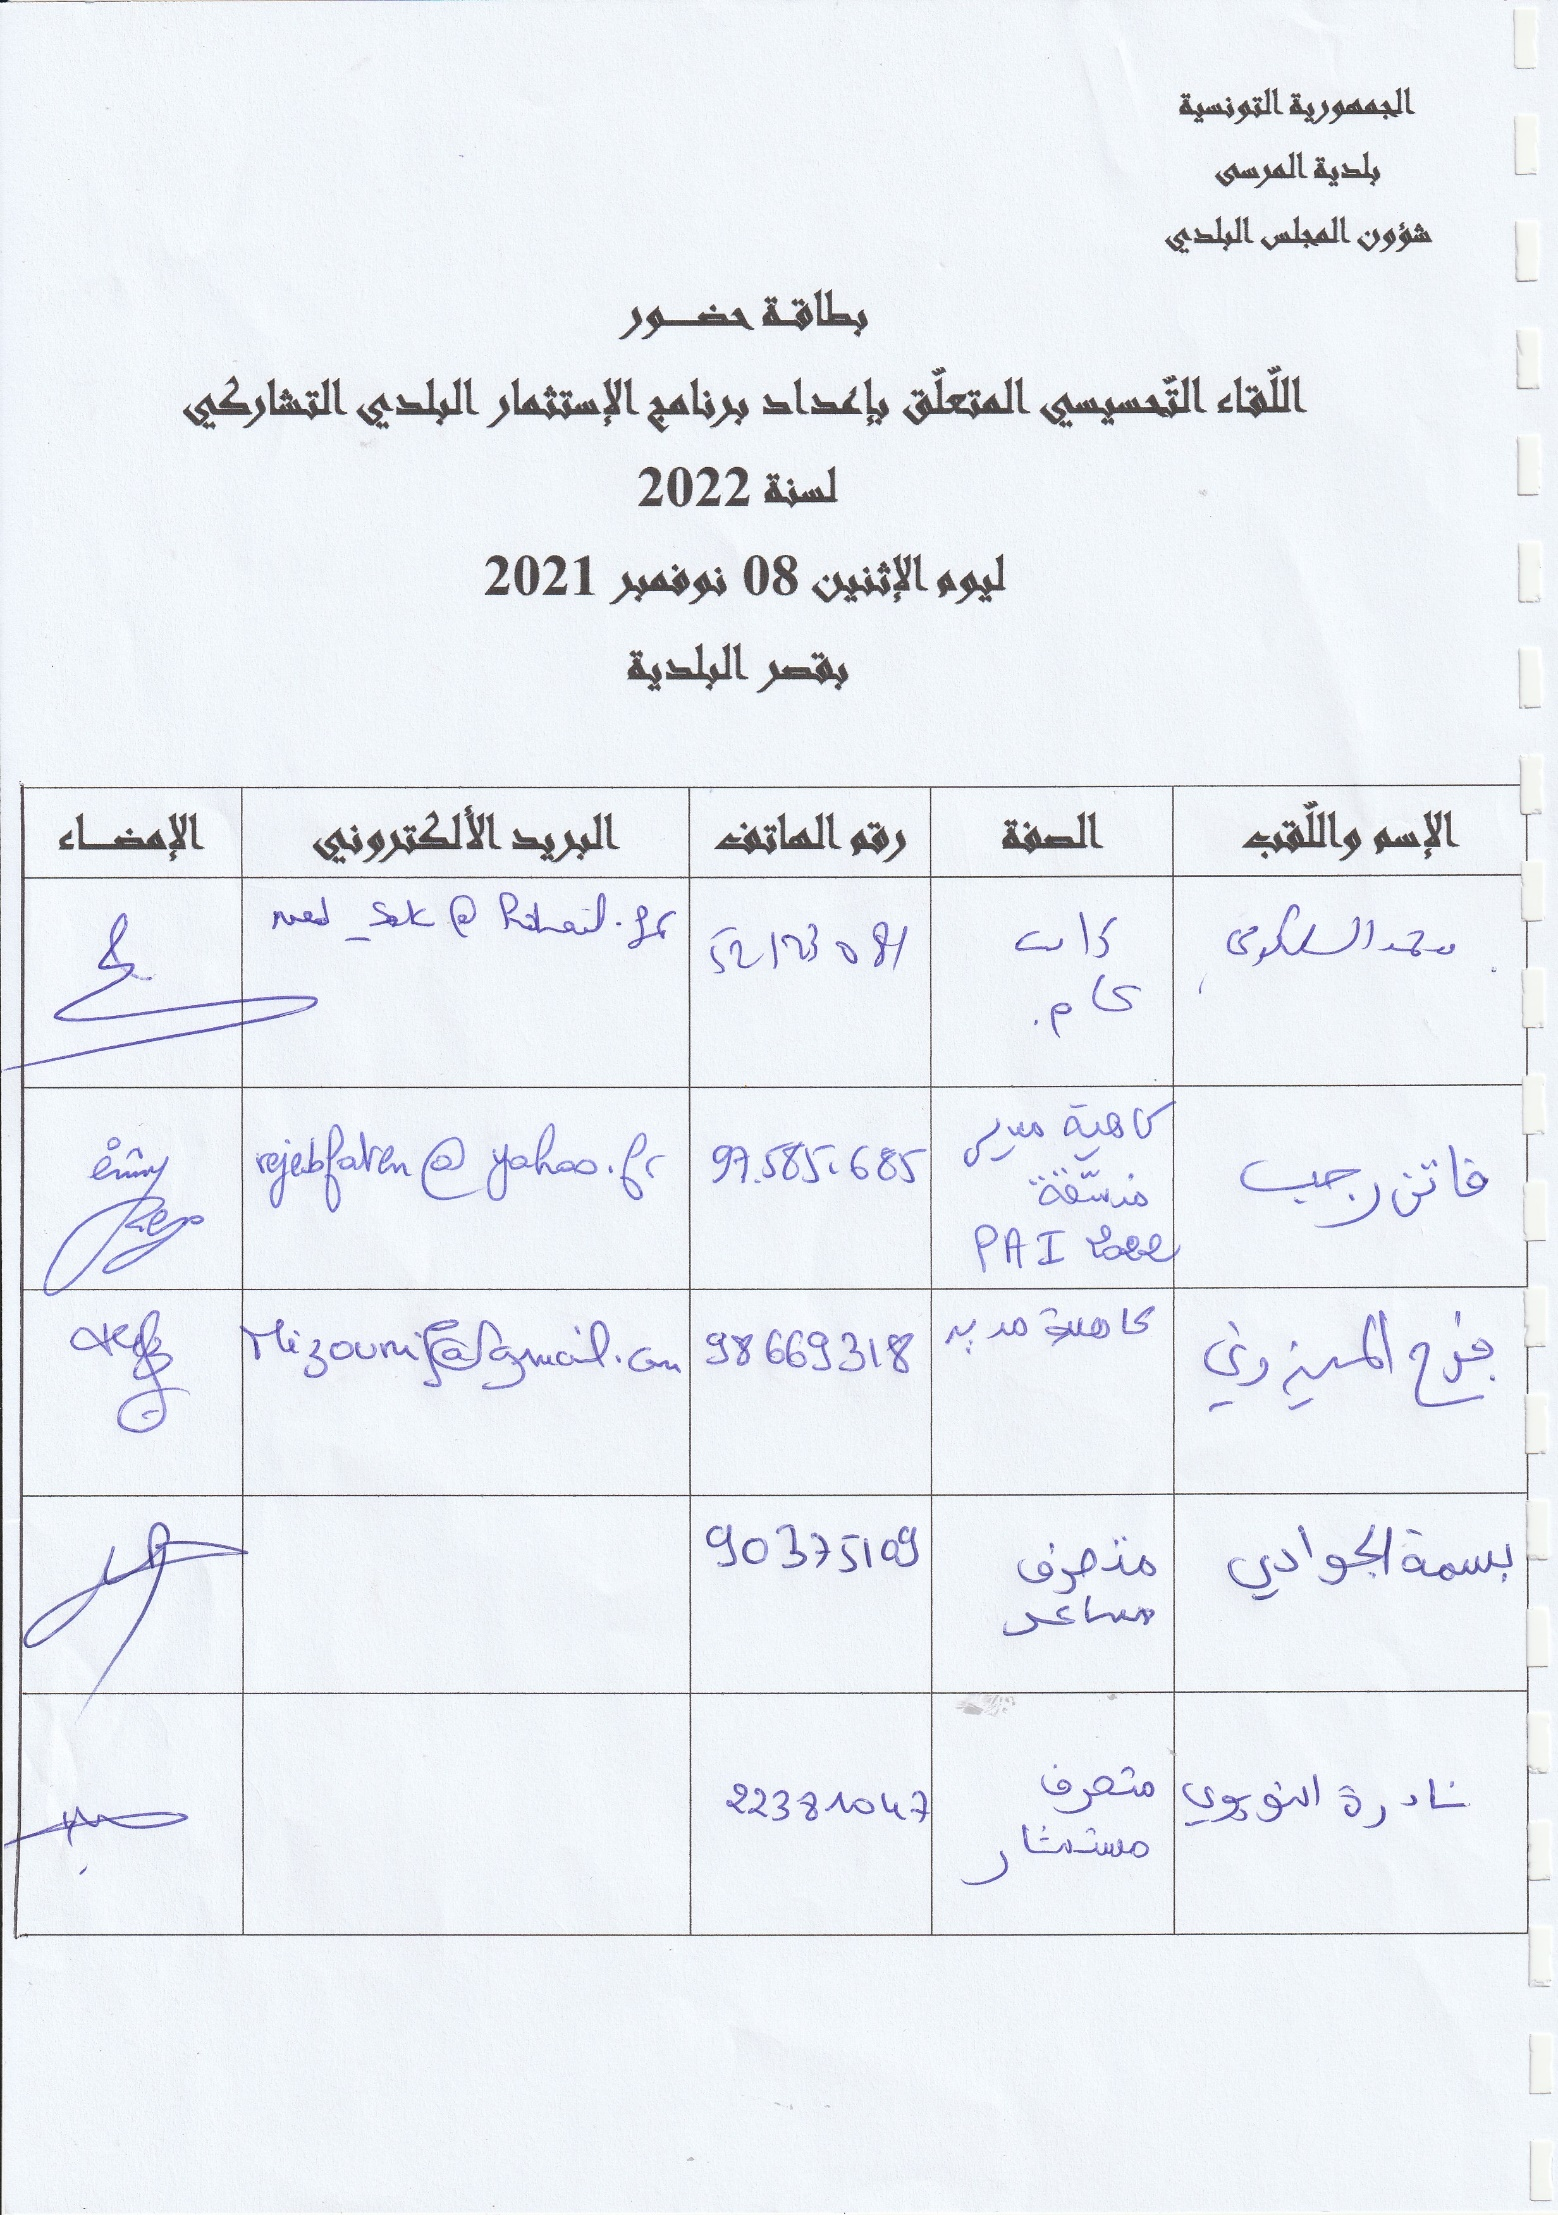 الجمهورية التونسية
بلدية المرسى
شؤون المجلس البلدي
بطاقة حضـــور
اللّقاء التّحسيسي المتعلّق بإعداد برنامج الإستثمار البلدي التشاركي
لسنة 2022
ليوم الإثنين 08 نوفمبر 2021
بقصر البلدية
الإسم واللّقب الصفة رقم الهاتف البريد الألكتروني الإمضــاء
محمد السلكومي كاتب 52123081
عام.
فاتن رجب كاهية مدير 97.585.685 rejebfaten@yahoo.fr
منسّقة
PAI 2022
فرج الميزوني كاهية مدير 98669318 Mizounif@gmail.com
بسمة الجوادي متصرف 90375109
مساعد
نادرة النويوي متصرف 22381047
مستشار